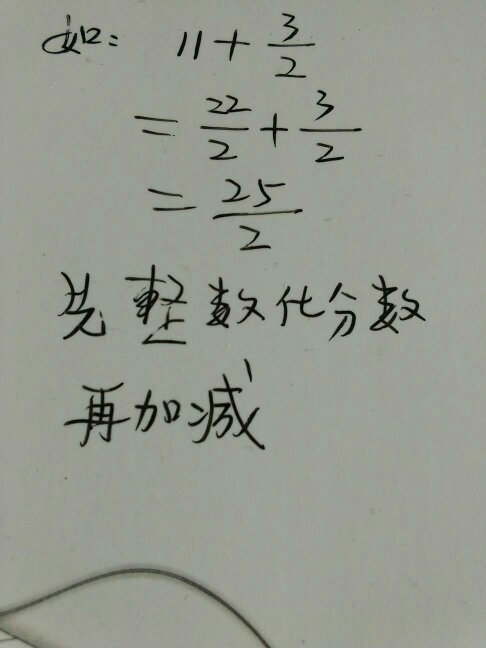 如: 11 + 3/2
= 22/2 + 3/2
= 25/2
先整数化分数
再加减